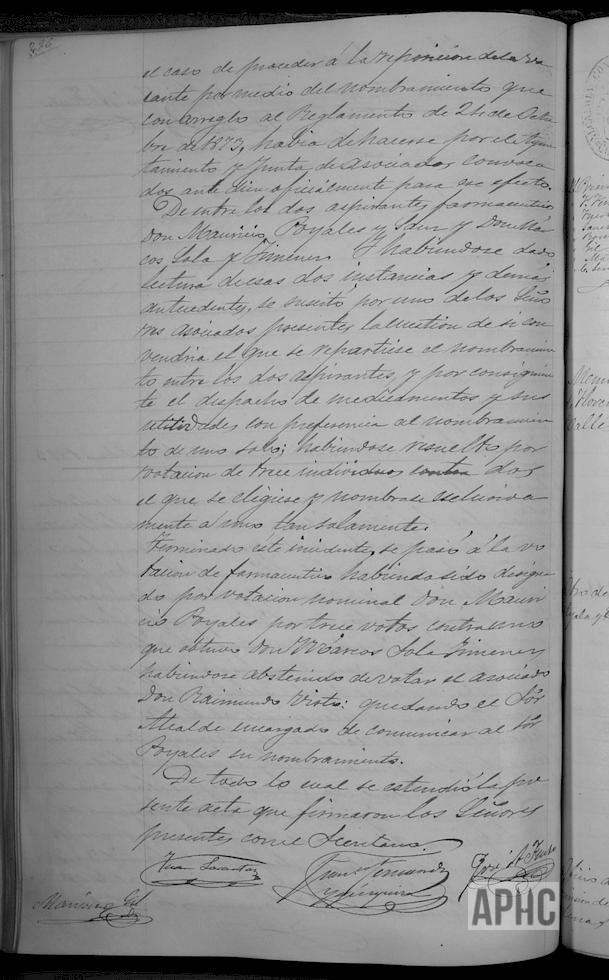 236
el caso de proceder á la reposicion de la va
cante por medio del nombramiento que
con arreglo al Reglamento de 24 de Octu
bre de 1873, habia de hacerse por el Ayun
tamiento y Junta de Asociados convoca
dos ante mi oficialmente para ese efecto.
De entre los dos aspirantes farmaceuticos
Don Mauricio Royales y Don Már
cos Sola y Jimenez. Y habiendose dado
lectura de esas dos instancias y demas
antecedentes, se suscitó por uno de los Seño
res asociados presentes la cuestion de si con
vendria el que se repartiese el nombramien
to entre los dos aspirantes, y por consiguien
te el despacho de medicamentos y sus
utilidades con preferencia al nombramien
to de uno solo; habiendose resuelto por
votacion de trece individuos contra dos
el que se eligiese y nombrase esclusiva
mente á uno tan solamente.
Terminado este incidente, se pasó á la vo
tacion de farmaceutico habiendo sido designa
do por votacion nominal Don Mauri
cio Royales por trece votos contra uno
que obtuvo Don Marcos Sola Jimenez
habiendose abstenido de votar el asociado
Don Raimundo Victo: quedando el Sór
Alcalde encargado de comunicar al Sór
Royales su nombramiento.
De todo lo cual se estendió la pre
sente acta que firmaron los Señores
presentes con el Secretario.
Juan
Fernandez
José
Mauricio Gil
APHC